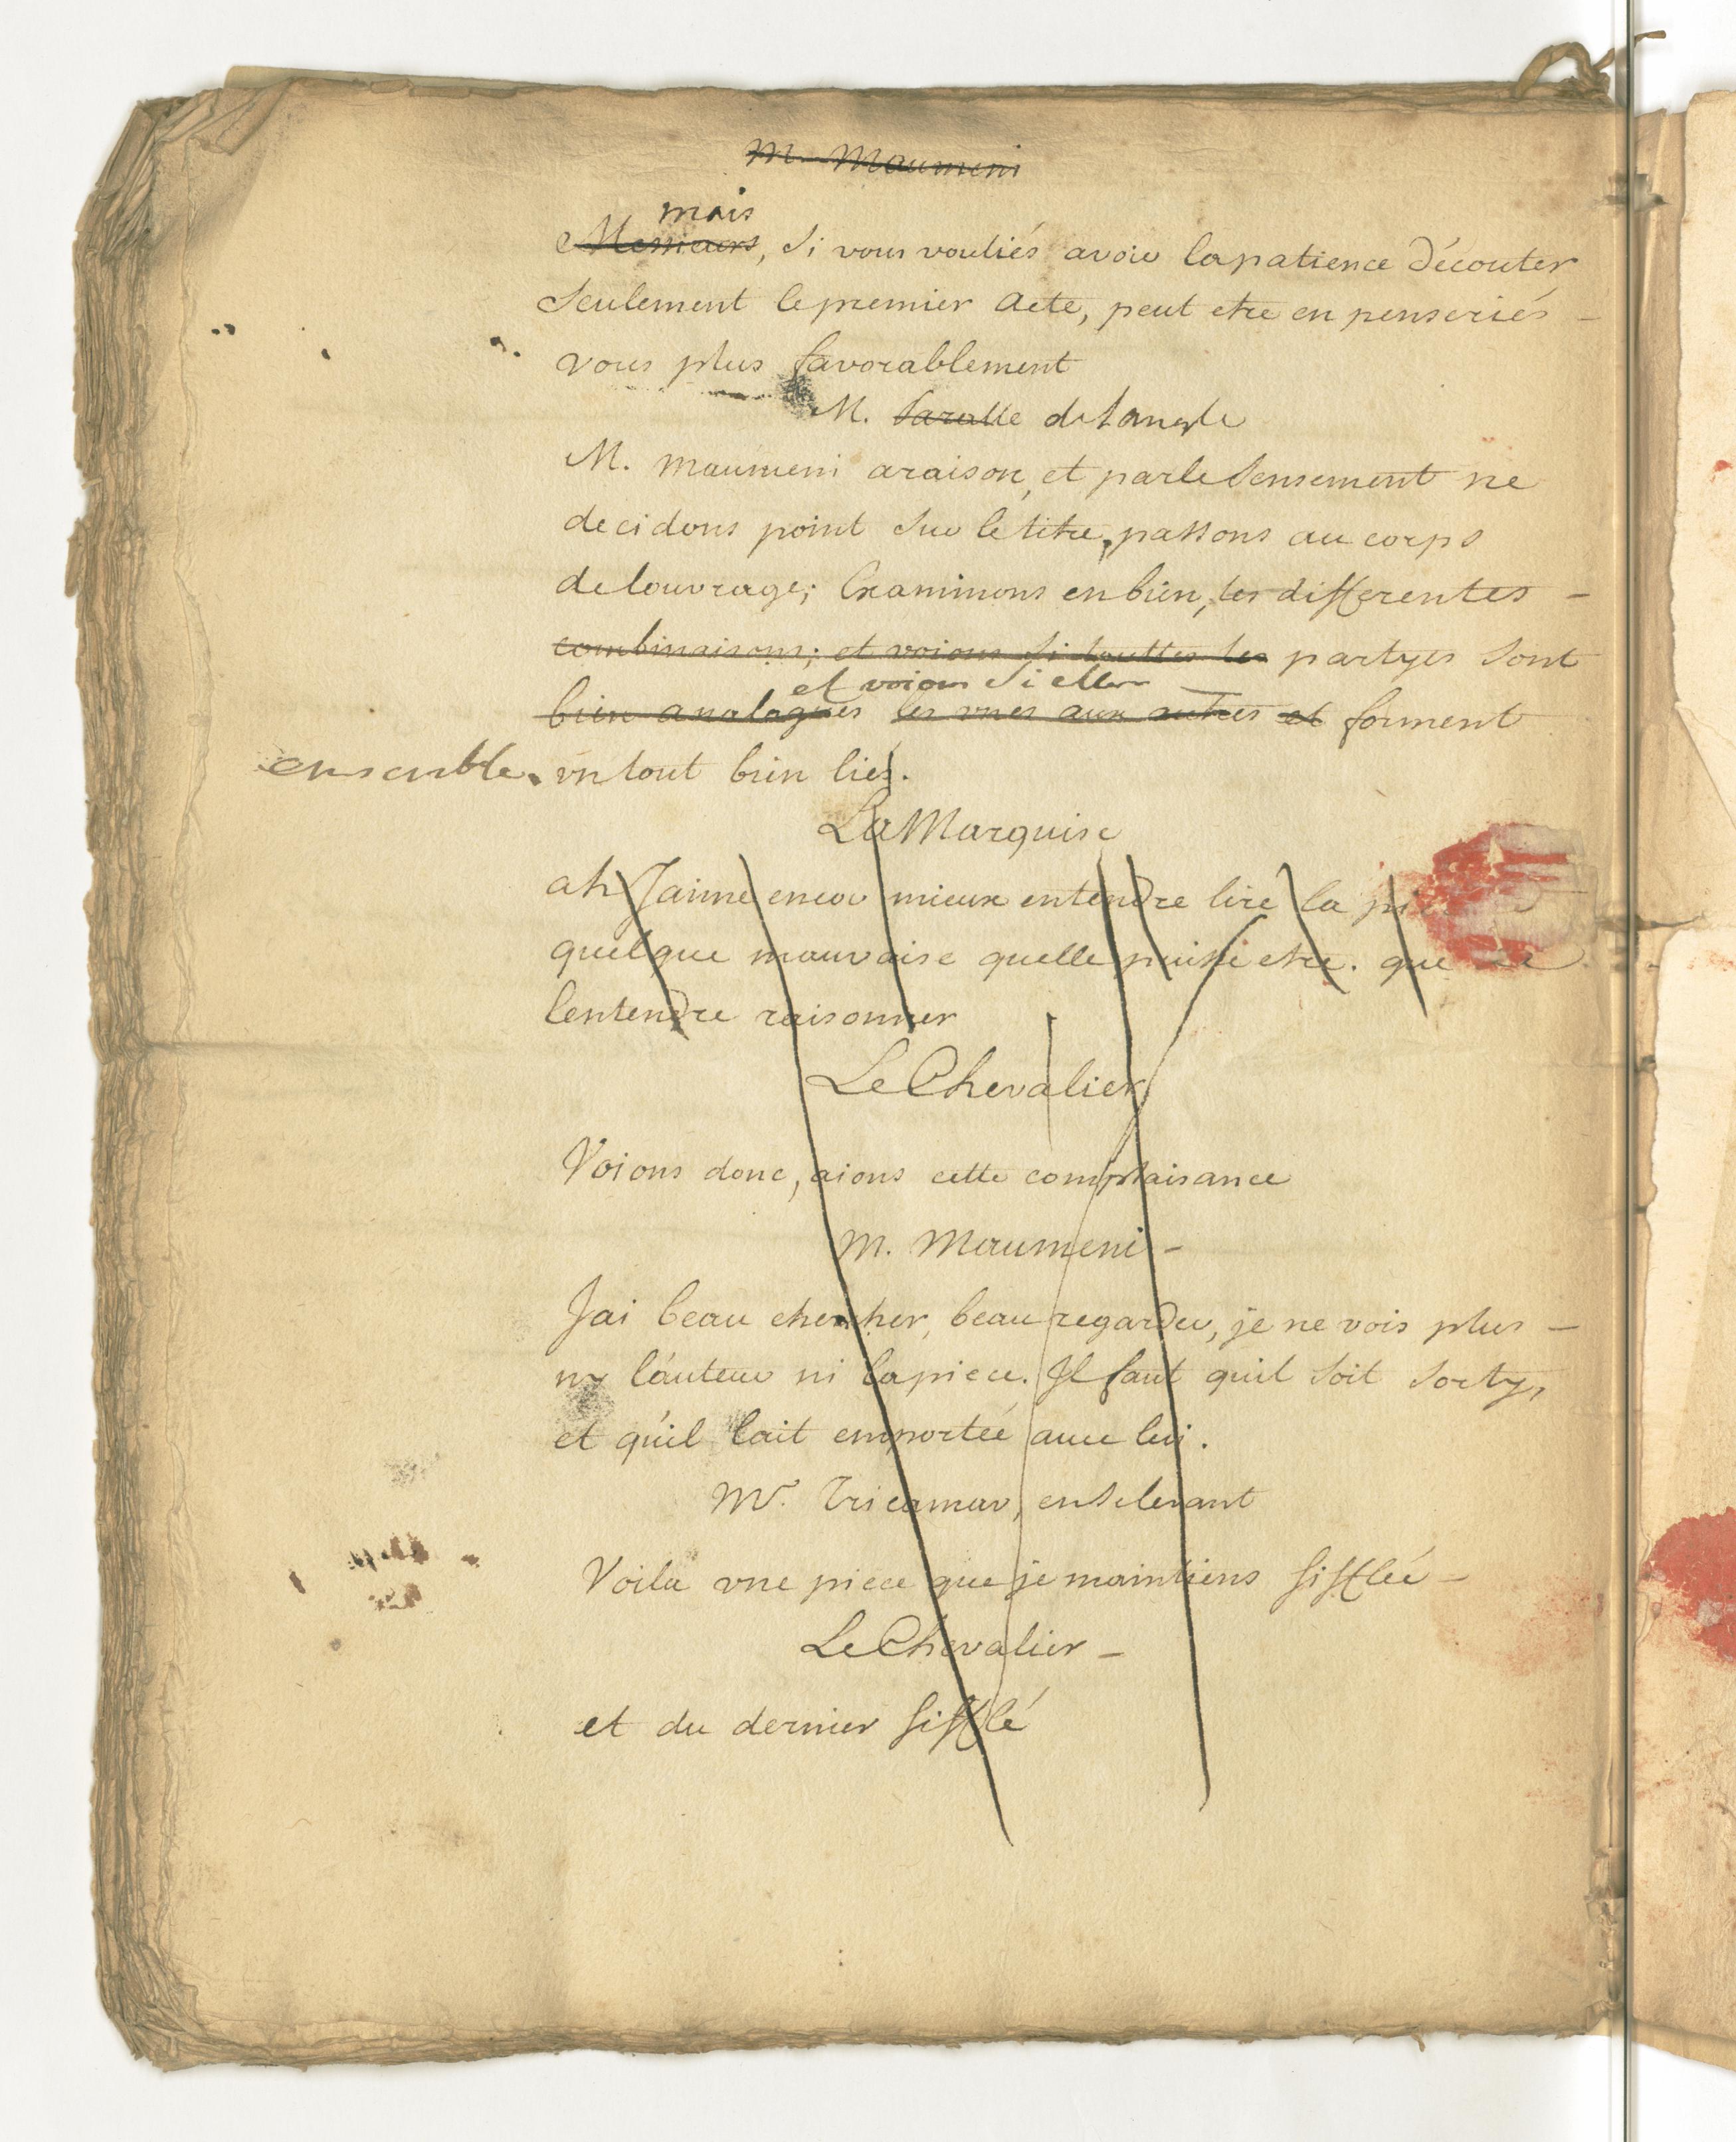 M. Maumeni
mais
Messieurs, Si vous vouliés avoir la patience d'écouter
Seulement le premier acte, peut etre en penseriés -
vous plus favorablement
M. detangle
M. maumeni a raison, et parle Sensement ne
decidons point Sur le titre, passons au corps
de louvrage; Examinons en bien, les differentes -
combinaisons; et voions Si touttes les partyes Sont
et voions Si elles
bien analogues les unes aux autres et forment
ensemble. un tout bien lié.
La Marquise
ah Jaime encor mieux entendre lire la
quelque mauvaise quelle puisse etre. que
lentendre raisonner
Le Chevalier
Voions donc, aions cette complaisance
m. Maumeni -
Jai beau chercher, beau regarder, je ne vois plus -
ny l'auteur ni la piece. Il faut quil Soit Sorty,
et qu'il lait emportée avec lui.
Mr. Tricamar, en Se levant
Voila une piece que je maintiens Sifflée -
Le Chevalier -
et du dernier Sifflé